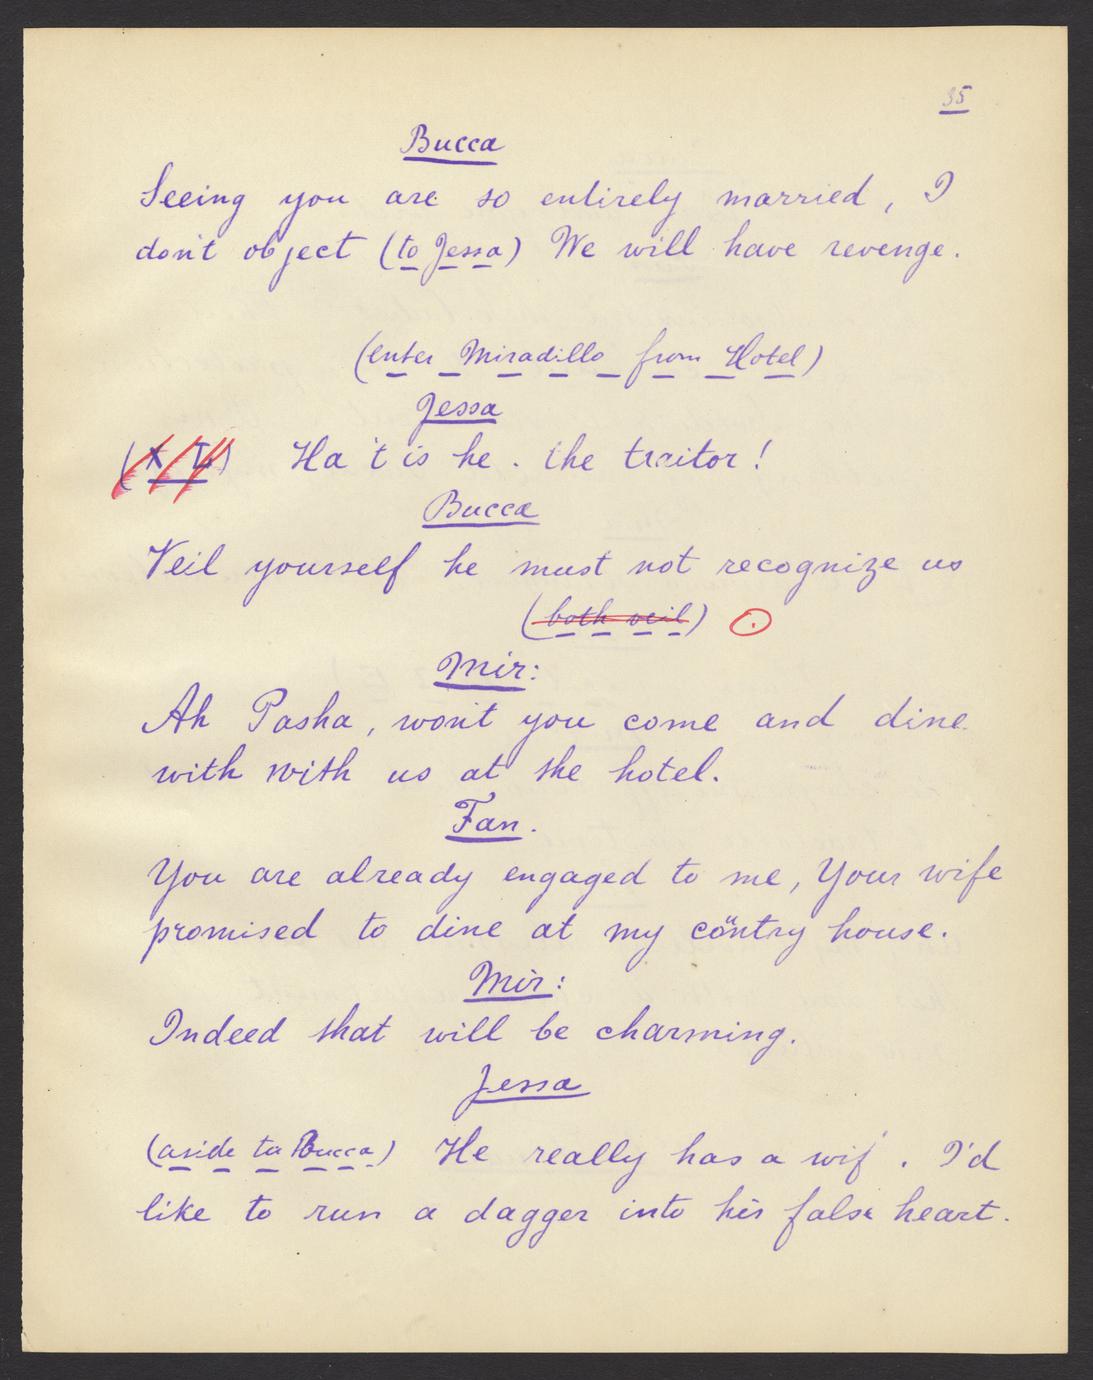 35
Bucca
Seeing you are so entirely married, I
don't object (to Jessa) We will have revenge.
(enter Miradillo from Hotel)
Jessa
(X L) Ha 't is he. the traitor!
Bucca
Veil yourself he must not recognize us
(both veil)
Mir:
Ah Pasha, won't you come and dine
with with us at the hotel.
Fan.
You are already engaged to me, Your wife
promised to dine at my contry house.
Mir:
Indeed that will be charming.
Jessa
(aside to Bucca) He really has a wif. I'd
like to run a dagger into his false heart.